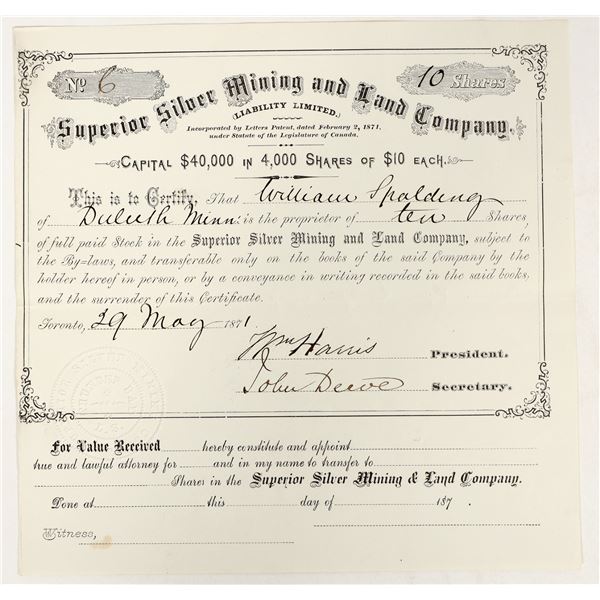 No 6
10 Shares
Superior Silver Mining and Land Company.
(LIABILITY LIMITED.)
Incorporated by Letters Patent, dated February 2, 1871,
under Statute of the Legislature of Canada.
CAPITAL $40,000 IN 4,000 SHARES OF $10 EACH.
This is to Certify, That William Spalding
of Duluth Minn is the proprietor of ten Shares,
of full paid Stock in the Superior Silver Mining and Land Company, subject to
the By=laws, and transferable only on the books of the said Company by the
holder hereof in person, or by a conveyance in writing recorded in the said books,
and the surrender of this Certificate.
Toronto, 29 May 1871.
Wm Harris President.
John Secretary.
For Value Received hereby constitute and appoint
true and lawful attorney for and in my name to transfer to
Shares in the Superior Silver Mining & Land Company.
Done at this day of 187 .
Witness,